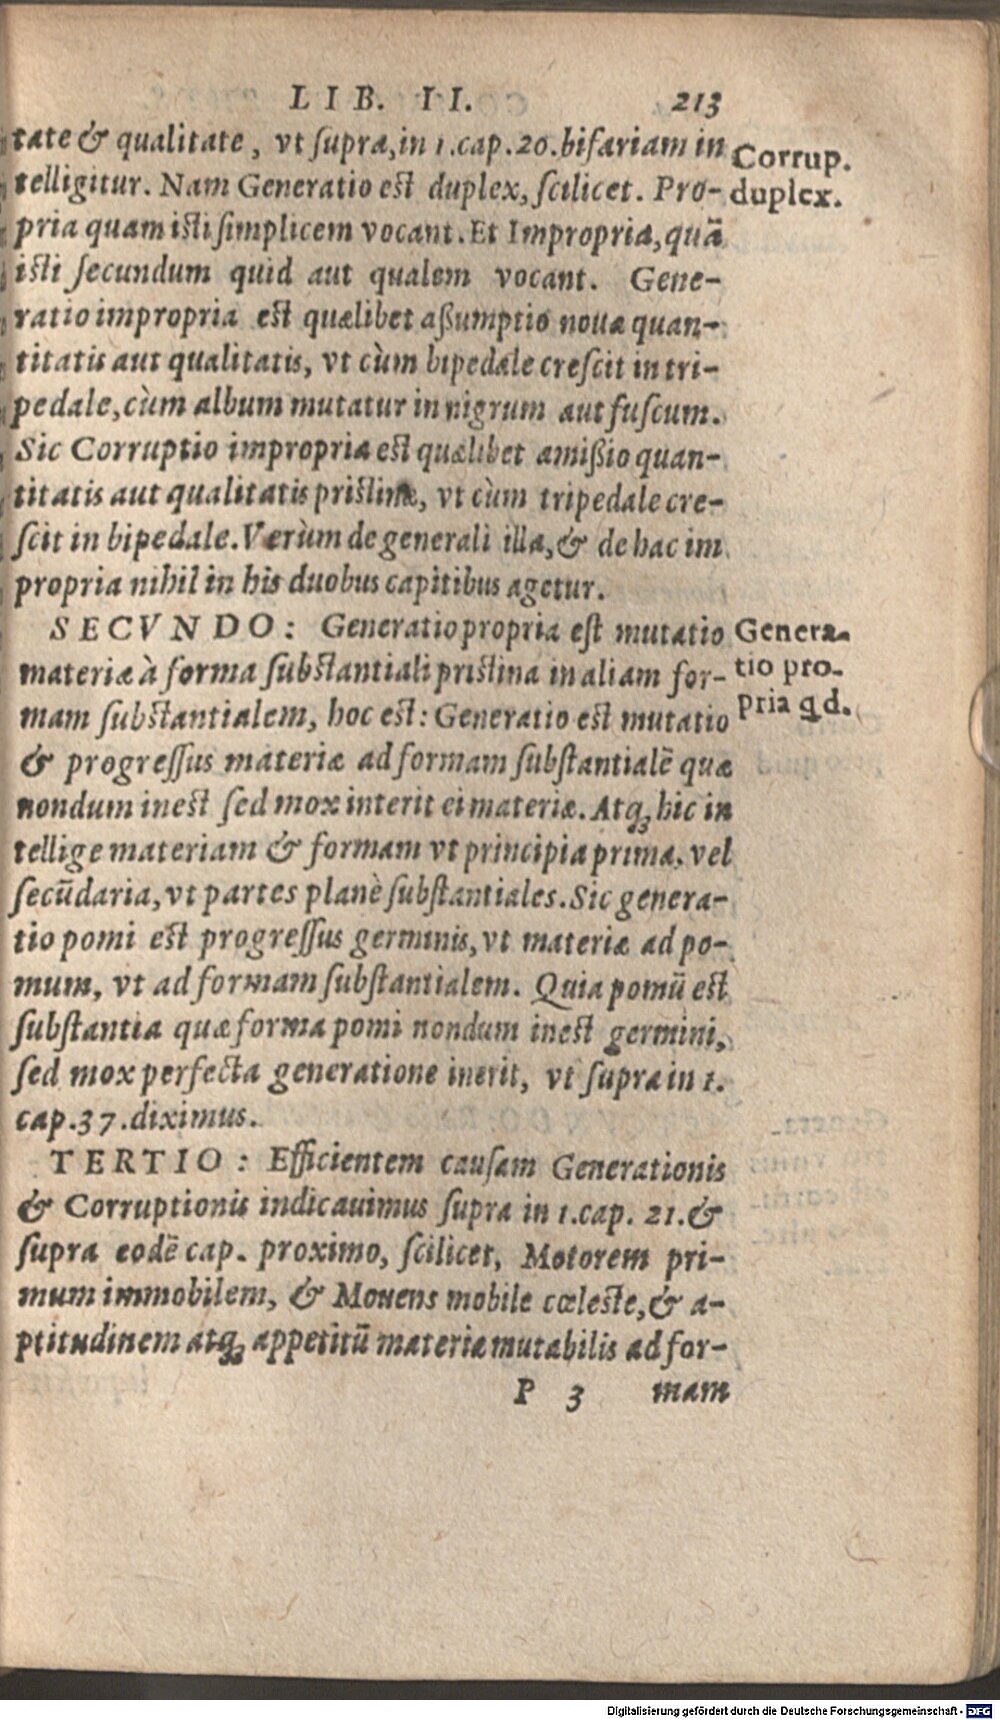 LIB. II. 213
tate & qualitate, vt ſupra, in 1. cap. 20. bifariam in
telligitur. Nam Generatio est duplex, ſcilicet. Pro-
pria quam isti ſimplicem vocant. Et Impropria, quā
isti ſecundum quid aut qualem vocant. Gene-
ratio impropria est quælibet aßumptio nouæ quan-
titatis aut qualitatis, vt cùm bipedale creſcit in tri-
pedale, cùm album mutatur in nigrum aut fuſcum.
Sic Corruptio impropria est quælibet amißio quan-
titatis aut qualitatis pristinæ, vt cùm tripedale cre-
ſcit in bipedale. Verùm de generali illa, & de hac im
propria nihil in his duobus capitibus agetur.
Corrup.
duplex.
SECVNDO: Generatio propria eſt mutatio
materiæ à forma ſubstantiali pristina in aliam for-
mam ſubstantialem, hoc est: Generatio est mutatio
& progreſſus materiæ ad formam ſubſtantialē quæ
nondum inest ſed mox interit ei materiæ. Atqꝫ hic in
tellige materiam & formam vt principia prima, vel
ſecūdaria, vt partes planè ſubſtantiales. Sic genera-
tio pomi est progreſſus germinis, vt materiæ ad po-
mum, vt ad formam ſubſtantialem. Quia pomū est
ſubſtantia quæ forma pomi nondum inest germini,
ſed mox perfecta generatione inerit, vt ſupra in 1.
cap. 37. diximus.
Genera-
tio pro-
pria qd.
TERTIO: Efficientem cauſam Generationis
& Corruptionis indicauimus ſupra in 1. cap. 21. &
ſupra eodē cap. proximo, ſcilicet, Motorem pri-
mum immobilem, & Mouens mobile cœleste, & a-
ptitudinem atqꝫ appetitū materiæ mutabilis ad for-
P 3 mam
Digitalisierung gefördert durch die Deutsche Forschungsgemeinschaft - DFG